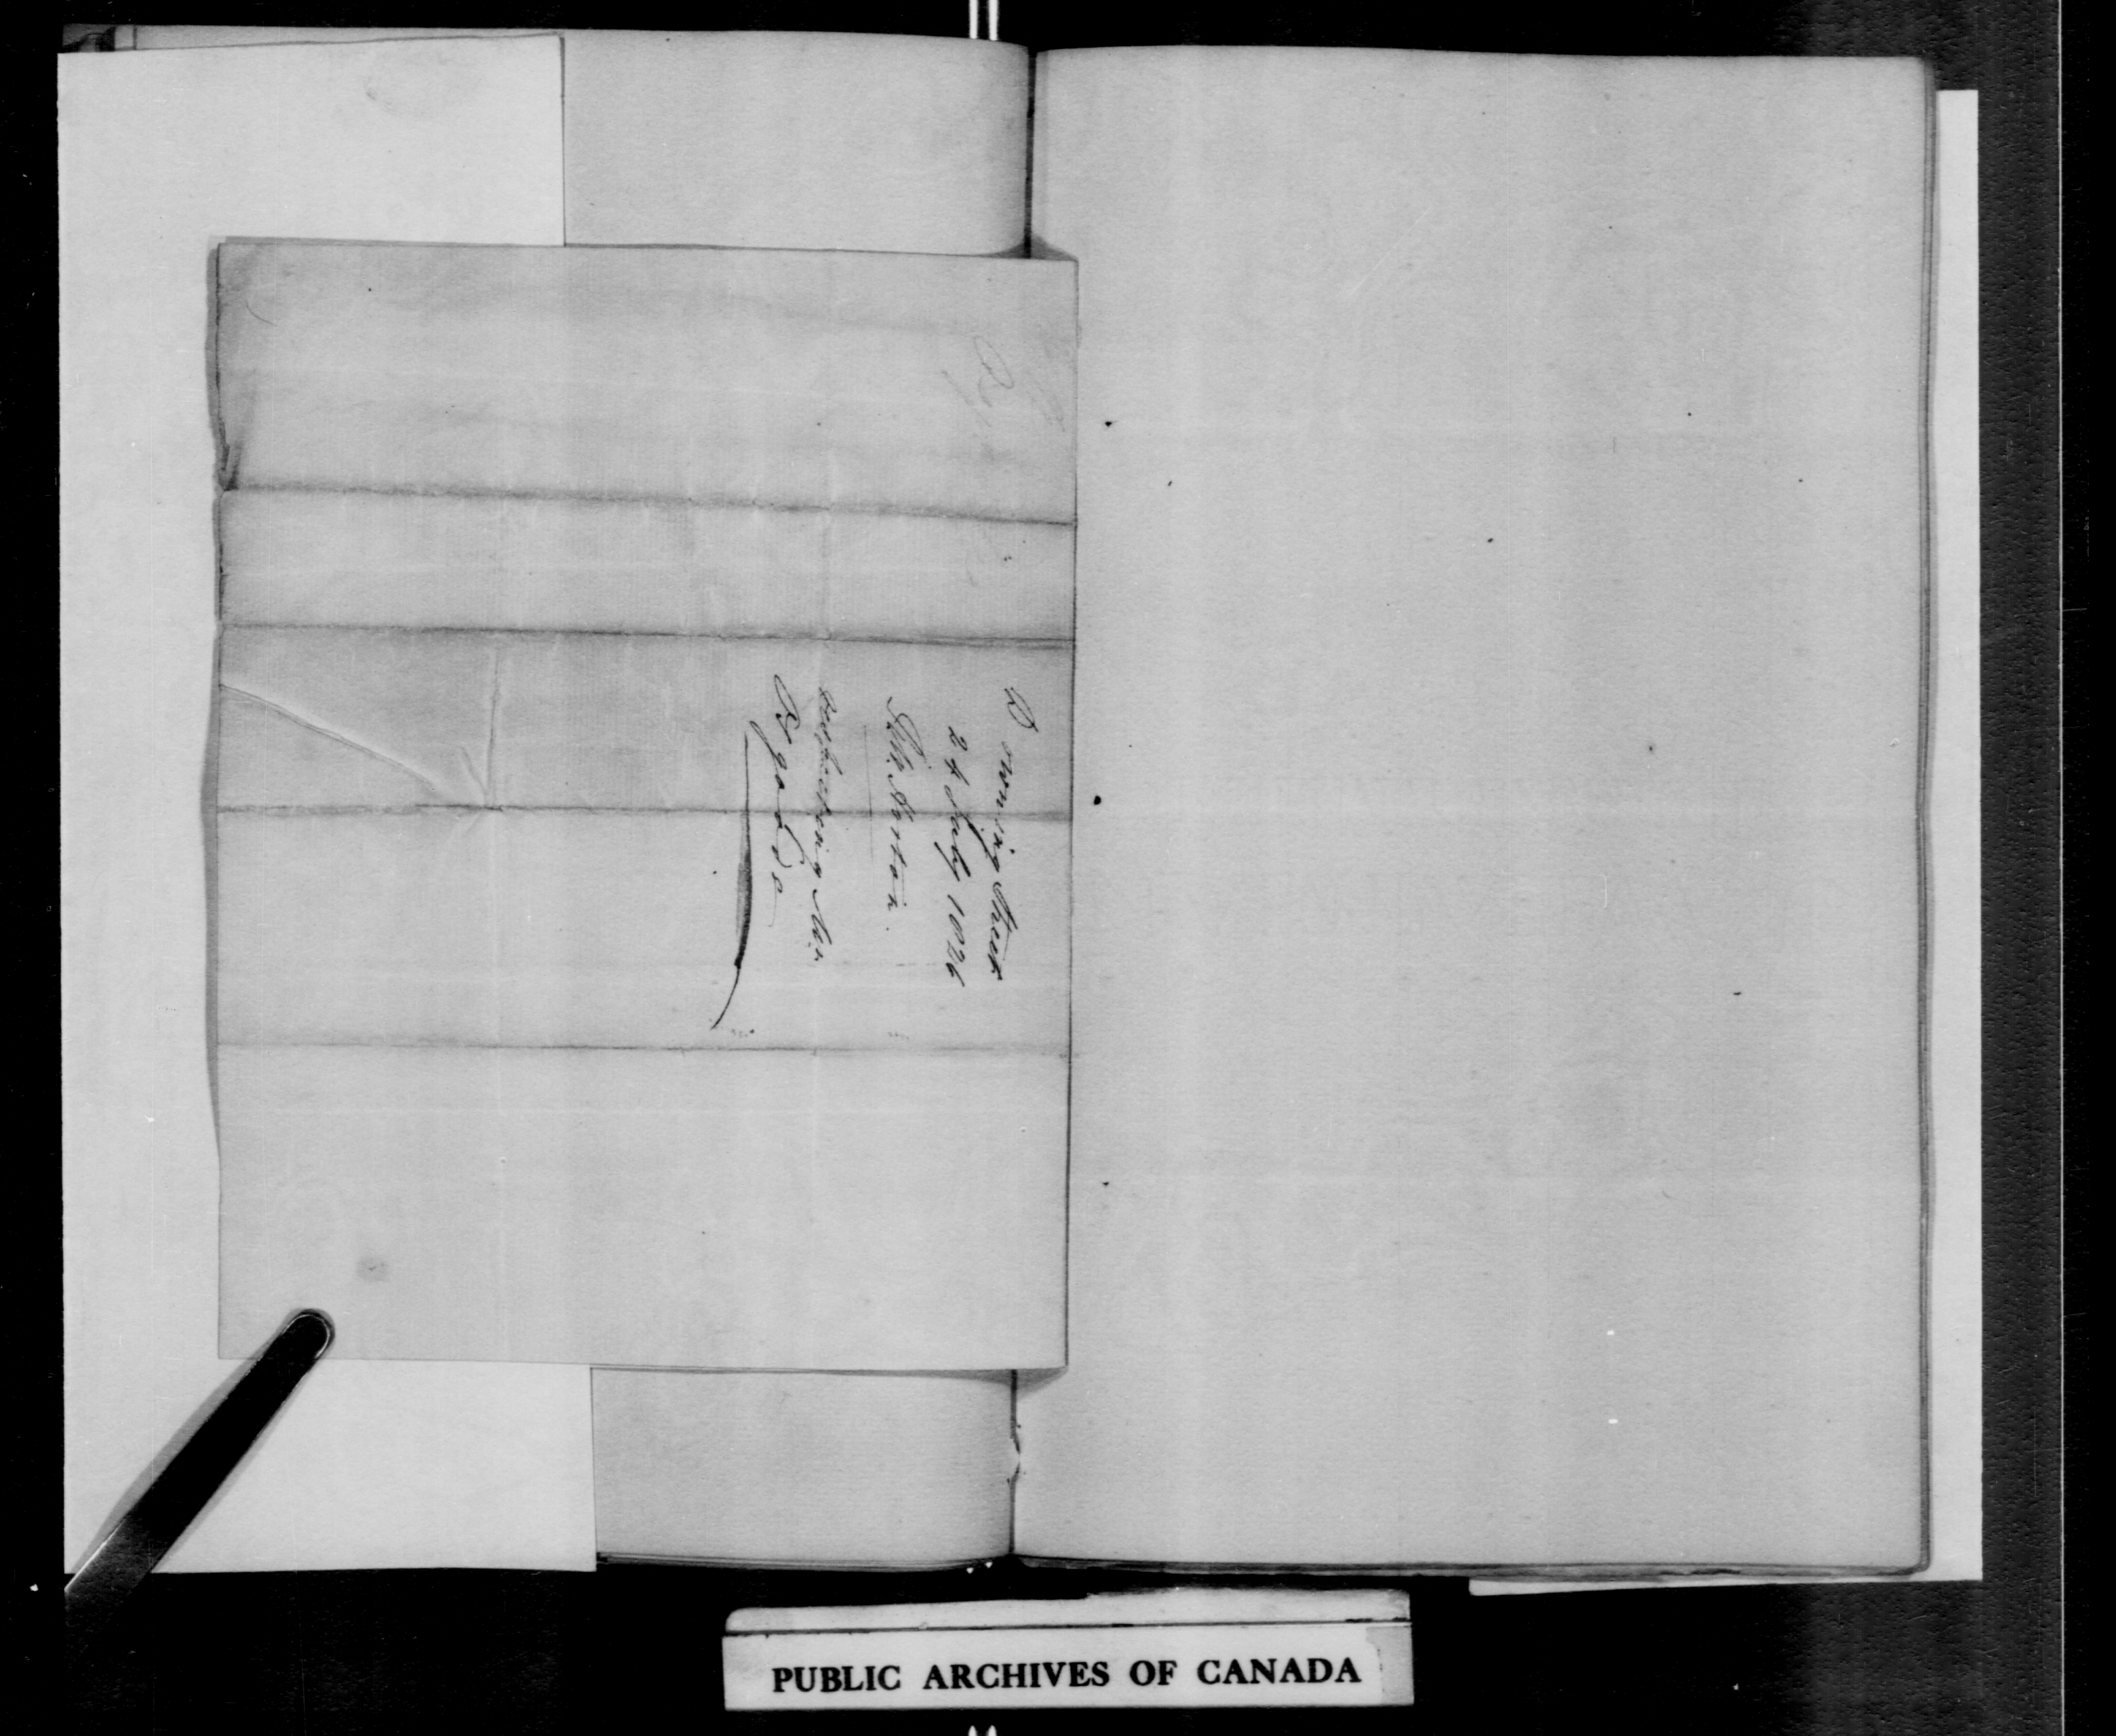 Downing Street
24 July 1826
Horton
respecting Mr
PUBLIC ARCHIVES OF CANADA